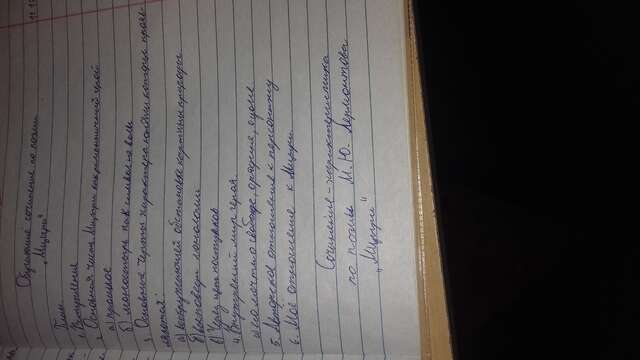 Обучающее сочинение по поэме
„Мцыри"
План
1. Вступление
2. Основная часть. Мцыри как романтический герой
а) прошлое
б) монастырь как символ не воли
3. Основные черты характера юноши которые прояв-
ляются:
а) в окружающей обстановке картины природы
б) исповеди монологии
в) Через цепь поступков
4. Внутрений мир героя.
а) его мечты о свободе, о родине, о доме
5. Авторское отношение к персонажу
6. Моё отношение к Мцыри.
Сочинение-характеристика
по поэмы М.Ю. Лермонтова
„Мцыри"